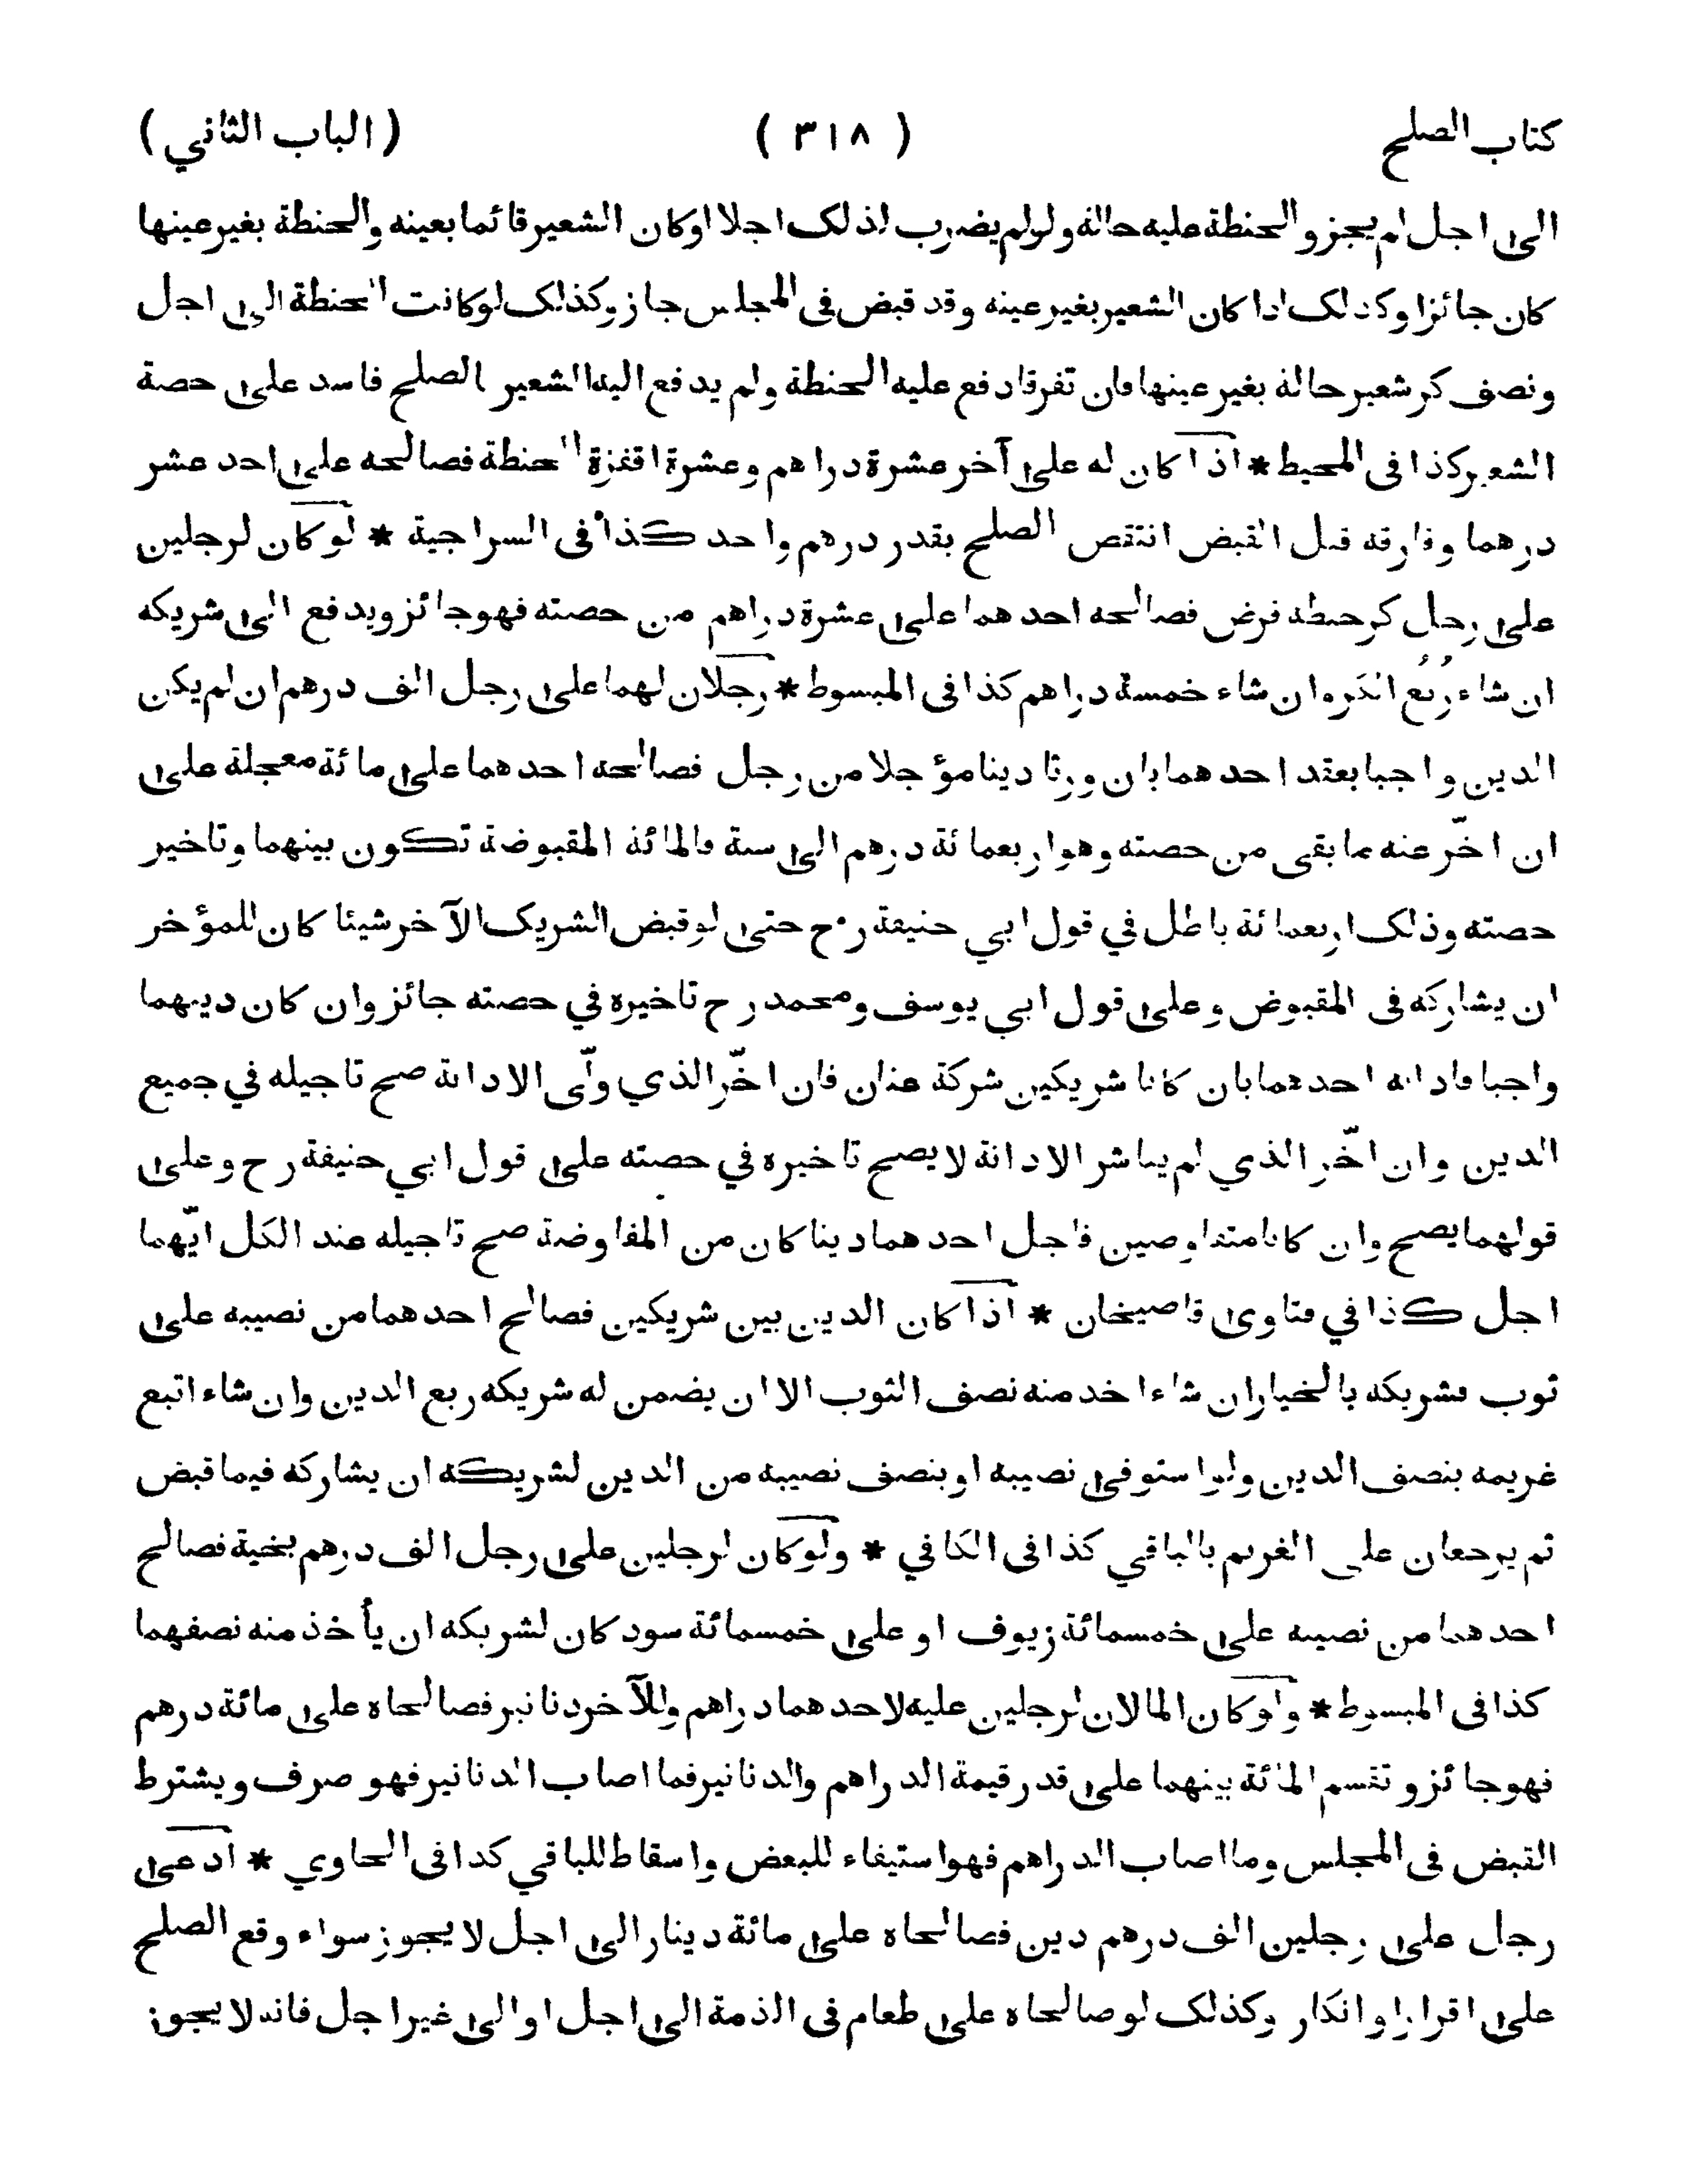 كتاب الصلح ( ٣١٨ ) ( الباب الثاني )
الى اجل لم يجز والحنطة عليه حالة ولولم يضرب لذلك اجلا اوكان الشعير قائما بعينه والحنطة بغير عينها
كان جائزا وكذلك اذا كان الشعير بغير عينه وقد قبض فى المجلس جاز وكذلك لوكانت الحنطة الى اجل
ونصف كر شعير حالة بغير عينها فان تفرقا دفع عليه الحنطة ولم يدفع اليه الشعير الصلح فاسد على حصة
الشعير كذا فى المحيط * اذا كان له على آخر عشرة دراهم وعشرة اقفزة حنطة فصالحه على احد عشر
درهما وفارقه قبل القبض انتقص الصلح بقدر درهم واحد كذا فى السراجية * لوكان لرجلين
على رجل كر حنطة قرض فصالحه احدهما على عشرة دراهم من حصته فهو جائز ويدفع الى شريكه
ان شاء رُبُع الكر وان شاء خمسة دراهم كذا فى المبسوط * رجلان لهما على رجل الف درهم ان لم يكن
الدين واجبا بعقد احدهما بان ورثا دينا مؤجلا من رجل فصالحه احدهما على مائة معجلة على
ان اخّر عنه ما بقى من حصته وهو اربعمائة درهم الى سنة فالمائة المقبوضة تكون بينهما وتاخير
حصته وذلك اربعمائة باطل في قول ابي حنيفة رح حتى لو قبض الشريك الآخر شيئا كان للمؤخر
ان يشاركه فى المقبوض وعلى قول ابي يوسف ومحمد رح تاخيره في حصته جائز وان كان دينهما
واجبا فادانه احدهما بان كانا شريكين شركة عنان فان اخّر الذي ولّى الادانة صح تاجيله في جميع
الدين وان اخّر الذي لم يباشر الادانة لا يصح تاخيره في حصته على قول ابي حنيفة رح وعلى
قولهما يصح وان كانا متفاوضين فاجل احدهما دينا كان من المفاوضة صح تاجيله عند الكل ايّهما
اجل كذا في فتاوى قاضيخان * اذا كان الدين بين شريكين فصالح احدهما من نصيبه على
ثوب فشريكه بالخيار ان شاء اخذ منه نصف الثوب الا ان يضمن له شريكه ربع الدين وان شاء اتبع
غريمه بنصف الدين ولو استوفى نصيبه او بنصف نصيبه من الدين لشريكه ان يشاركه فيما قبض
ثم يرجعان على الغريم بالباقي كذا فى الكافي * ولوكان لرجلين على رجل الف درهم بخية فصالح
احدهما من نصيبه على خمسمائة زيوف او على خمسمائة سود كان لشريكه ان يأخذ منه نصفهما
كذا فى المبسوط * ولوكان المالان لرجلين عليه لاحدهما دراهم وللآخر دنانير فصالحاه على مائة درهم
فهو جائز وتقسم المائة بينهما على قدر قيمة الدراهم والدنانير فما اصاب الدنانير فهو صرف ويشترط
القبض فى المجلس وما اصاب الدراهم فهو استيفاء للبعض واسقاط للباقي كذا فى الحاوي * ادعى
رجل على رجلين الف درهم دين فصالحاه على مائة دينار الى اجل لا يجوز سواء وقع الصلح
على اقرار او انكار وكذلك لوصالحاه على طعام فى الذمة الى اجل او الى غير اجل فانه لا يجوز